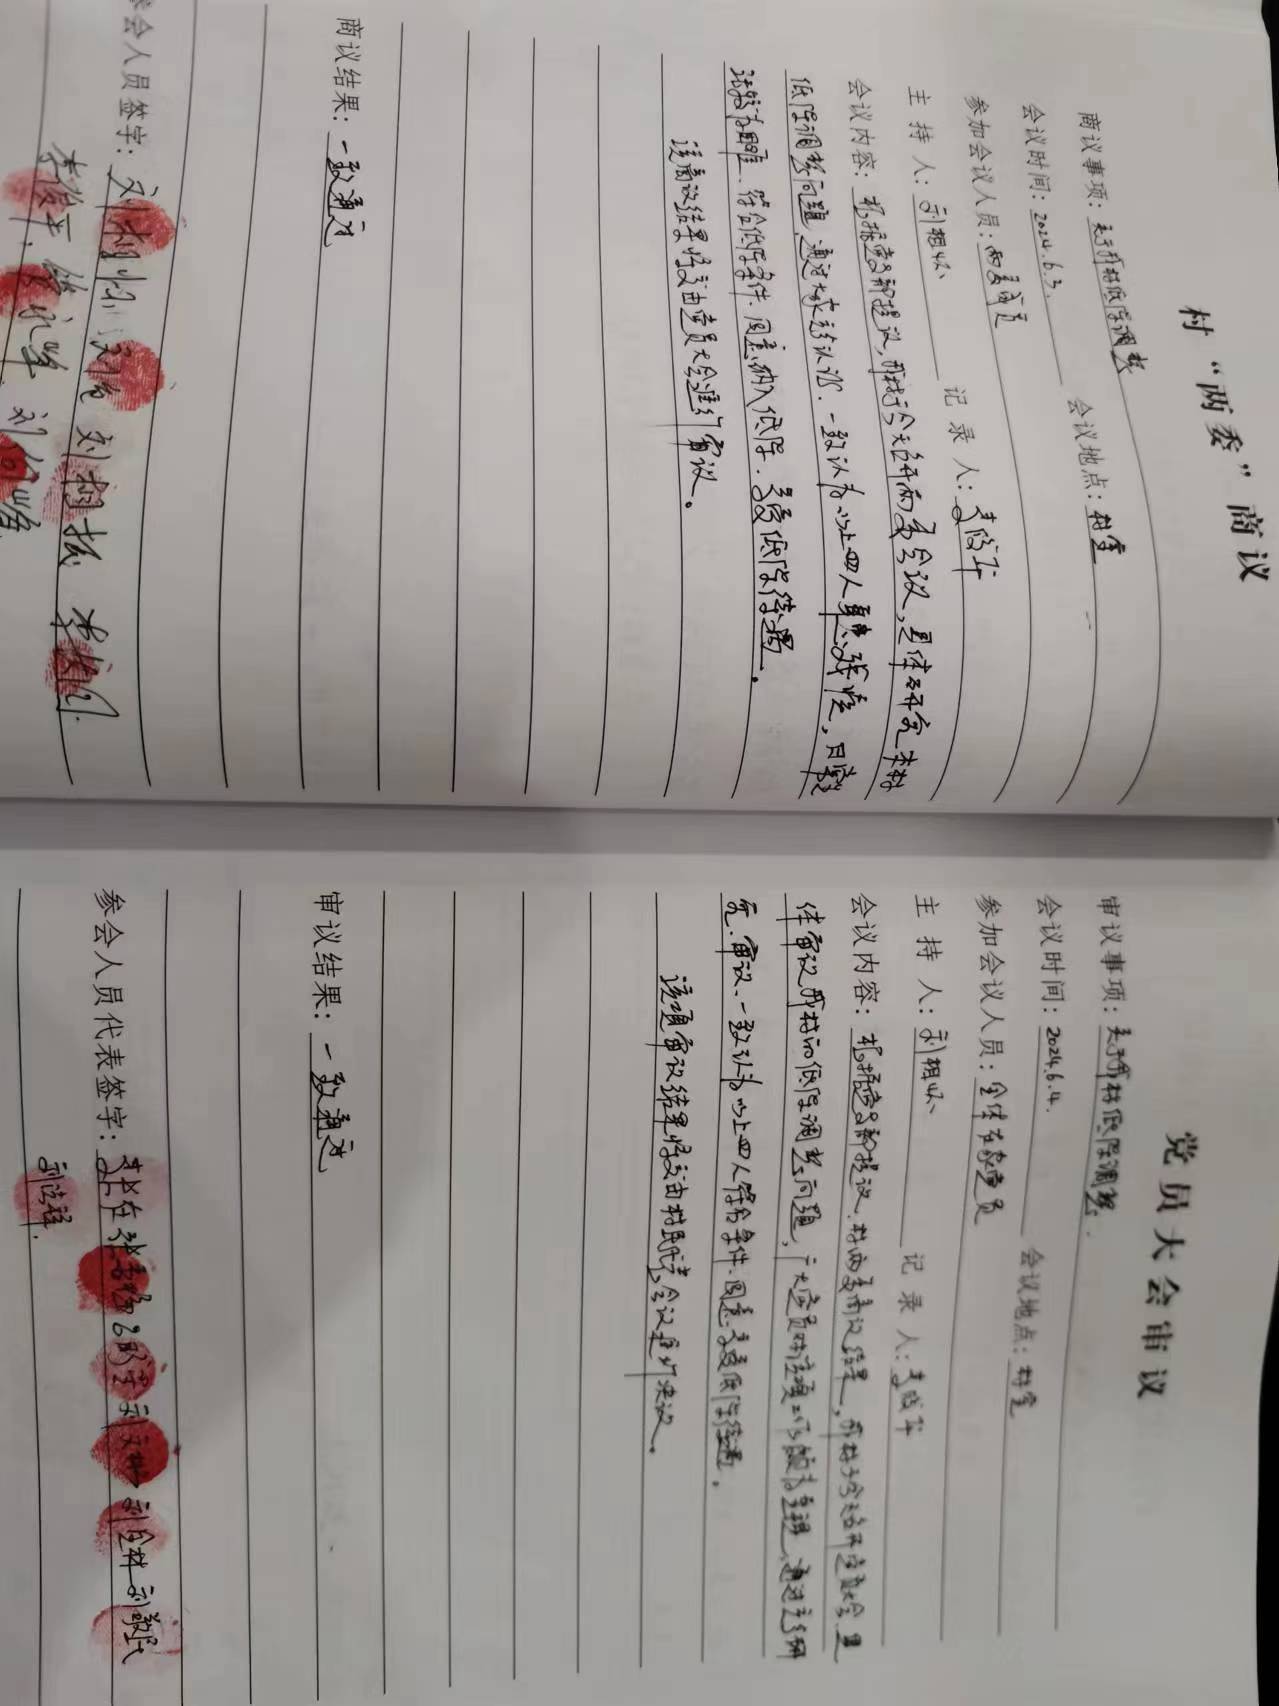 村“两委”商议
商议事项：关于我村低保调整
会议时间：2024.6.3. 会议地点：村室
参加会议人员：两委成员
主 持 人：刘相怀 记 录 人：李俊平
会议内容：根据支部提议，我村于今天召开两委会议，具体研究本村
低保调整问题，通过大家主动认识，一致认为以上四人患残疾，日常生
活较为困难，符合低保条件，同意纳入低保，享受低保待遇。
该商议结果将交由党员大会进行审议。
商议结果：一致通过
参会人员签字：刘相怀 刘相振
李俊平
党员大会审议
审议事项：关于我村低保调整.
会议时间：2024.6.4. 会议地点：村室
参加会议人员：全体在家党员
主 持 人：刘相怀 记 录 人：李俊平
会议内容：根据支部提议，村两委商议结果，我村于今天召开党员大会，具
体审议我村的低保调整问题，广大党员对该项工作颇为重视，通过主动研
究、审议、一致认为以上四人符合条件，同意享受低保待遇。
该项审议结果将交由村民代表会议进行决议。
审议结果：一致通过
参会人员代表签字：刘文林 刘全林 刘敬民
刘法祥.